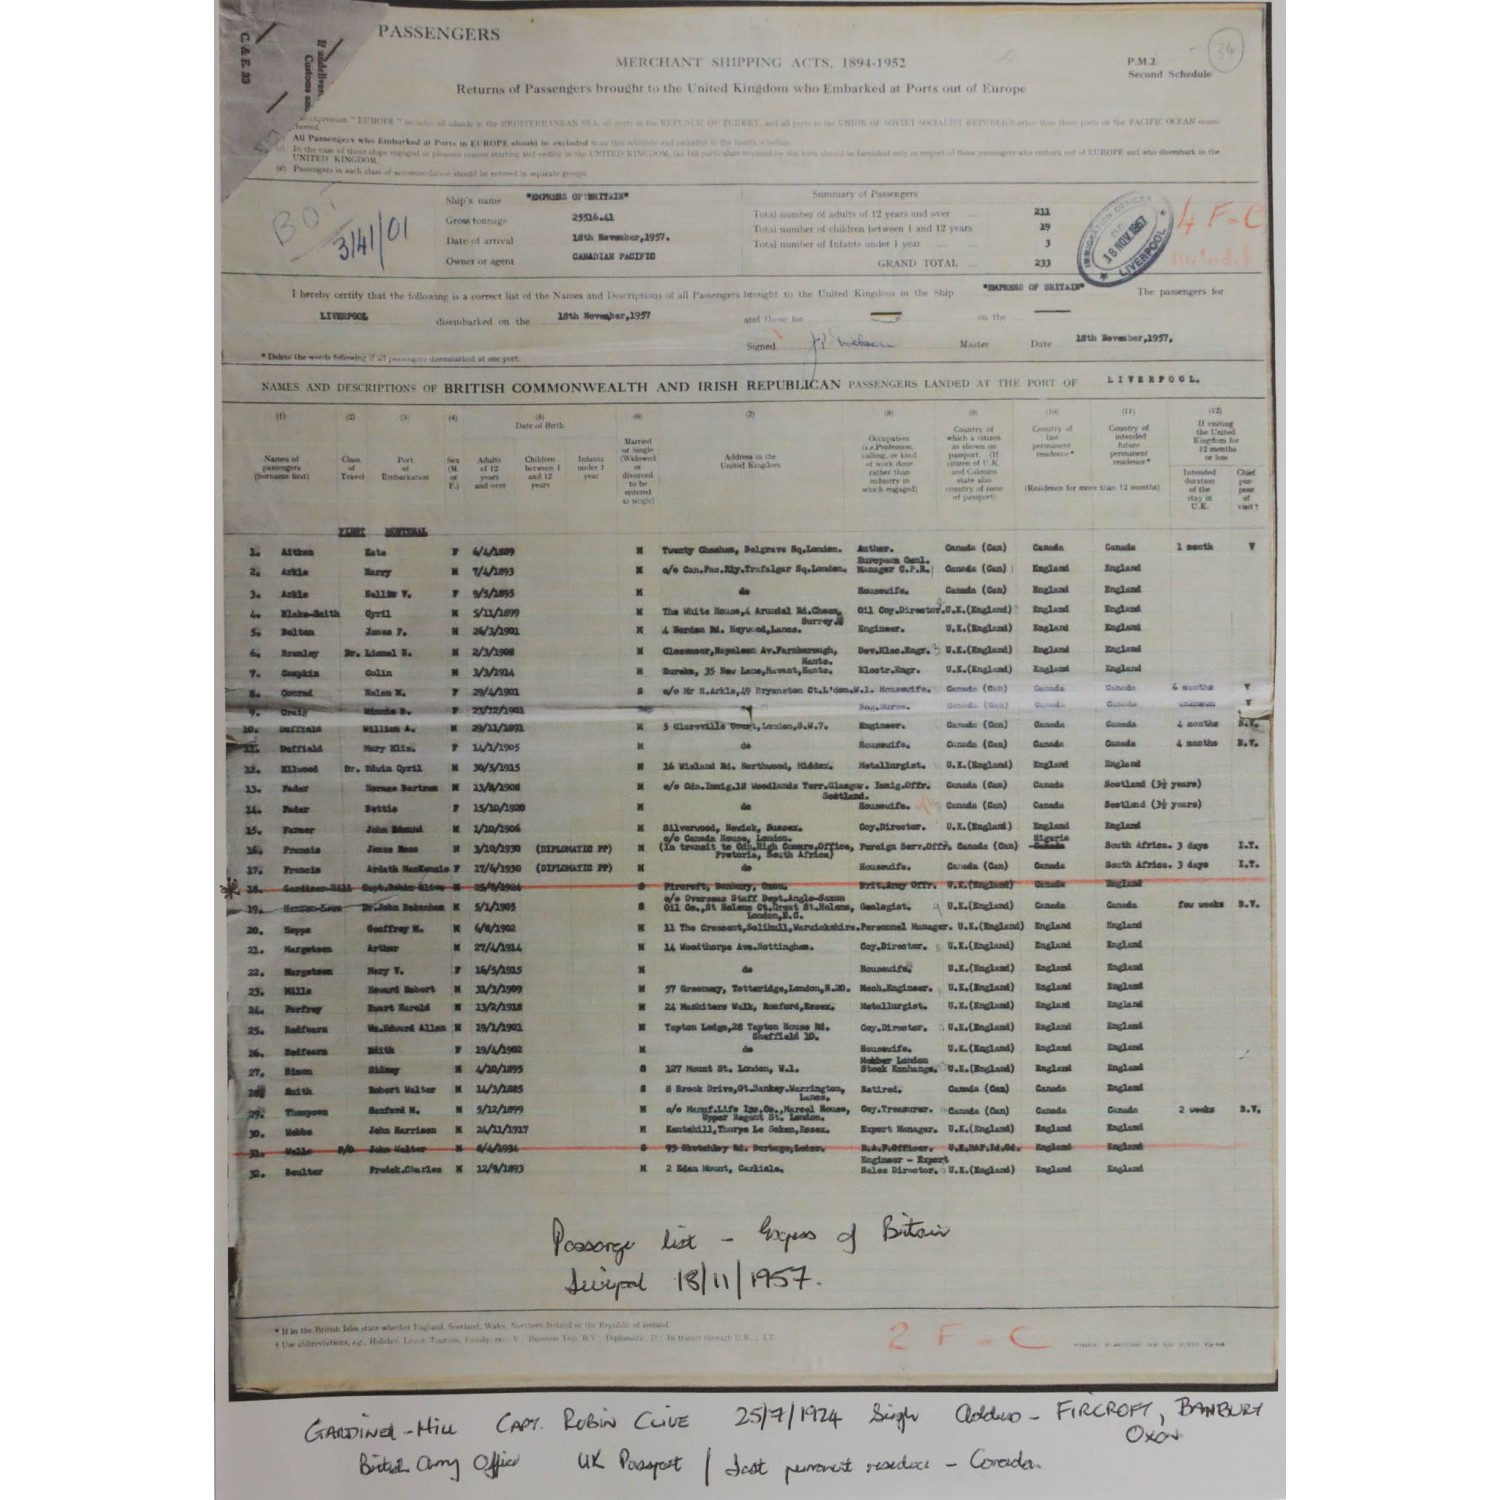 PASSENGERS
C. & E. 83
If undeliver
Customs an
34
MERCHANT SHIPPING ACTS, 1894-1952
P.M.2.
Second Schedule
Returns of Passengers brought to the United Kingdom who Embarked at Ports out of Europe
expression "EUROPE" includes all islands in the MEDITERRANEAN SEA, all ports in the REPUBLIC OF TURKEY, and all ports in the UNION OF SOVIET SOCIALIST REPUBLICS other than those ports on the PACIFIC OCEAN
All Passengers who Embarked at Ports in EUROPE should be excluded from this schedule and included in the fourth schedule.
UNITED KINGDOM.
Passengers in each class of accommodation should be entered in separate groups.
BOT
3/41/01
Ship's name "EMPRESS OF BRITAIN"
Gross tonnage 25516.41
Date of arrival 18th November,1957.
Owner or agent CANADIAN PACIFIC
Summary of Passengers
Total number of adults of 12 years and over 211
Total number of children between 1 and 12 years 19
Total number of Infants under 1 year 3
GRAND TOTAL 233
IMMIGRATION OFFICER
18 NOV 1957
LIVERPOOL
4 F-C
I hereby certify that the following is a correct list of the Names and Descriptions of all Passengers brought to the United Kingdom in the Ship "EMPRESS OF BRITAIN" The passengers for
LIVERPOOL disembarked on the 18th November,1957 and those for on the
Signed Master Date 18th November,1957.
* Delete the words following if all passengers disembarked at one port.
NAMES AND DESCRIPTIONS OF BRITISH COMMONWEALTH AND IRISH REPUBLICAN PASSENGERS LANDED AT THE PORT OF LIVERPOOL.
(1) (2) (3) (4) (5) (6) (7) (8) (9) (10) (11) (12)
Names of passengers (Surname first)
Class of Travel
Port of Embarkation
Sex (M. or F.)
Date of Birth
Adults of 12 years and over
Children between 1 and 12 years
Infants under 1 year
Married or Single (Widowed or divorced to be entered as single)
Address in the United Kingdom
Occupation (i.e. Profession, calling, or kind of work done rather than industry in which engaged)
Country of which a citizen as shown on passport. (If citizen of U.K. and Colonies state also country of issue of passport)
Country of last permanent residence*
Country of intended future permanent residence*
(Residence for more than 12 months)
If visiting the United Kingdom for 12 months or less
Intended duration of the stay in U.K.
Chief purpose of visit †
FIRST MONTREAL
1. Aitken Kate F 6/4/1889 M Twenty Chesham, Belgrave Sq.London. Author. Canada (Can) Canada Canada 1 month V
2. Arkle Harry M 7/4/1893 M c/o Can.Pac.Rly.Trafalgar Sq.London. European Genl. Manager C.P.R. Canada (Can) England England
3. Arkle Nellie V. F 9/5/1895 M do Housewife. Canada (Can) England England
4. Blake-Smith Cyril M 5/11/1899 M The White House,4 Arundel Rd.Cheam, Surrey. Oil Coy.Director. U.K.(England) England England
5. Bolton James F. M 26/3/1901 M 4 Norden Rd. Heywood,Lancs. Engineer. U.K.(England) England England
6. Bromley Dr. Lionel N. M 2/3/1908 M Glenmoor,Napoleon Av.Farnborough, Hants. Dev.Elec.Engr. U.K.(England) England England
7. Compkin Colin M 3/3/1914 M Eureka, 35 New Lane,Havant,Hants. Electr.Engr. U.K.(England) England England
8. Conrad Helen M. F 29/4/1901 S c/o Mr H.Arkle,49 Bryanston Ct.L'don.W.1. Housewife. Canada (Can) Canada Canada 6 months V
9. Craig Minnie B. F 23/12/1901 Reg.Nurse. Canada (Can) Canada Canada unknown V
10. Duffield William A. M 29/11/1891 M 5 Clareville Court,London,S.W.7. Engineer. Canada (Can) Canada Canada 4 months B.V.
11. Duffield Mary Eliz. F 14/1/1905 M do Housewife. Canada (Can) Canada Canada 4 months B.V.
12. Ellwood Dr. Edwin Cyril M 30/5/1915 M 16 Wieland Rd. Northwood, Middx. Metallurgist. U.K.(England) England England
13. Fader Horace Bertram M 13/8/1908 M c/o Cdn.Immig.18 Woodlands Terr.Glasgow. Scotland. Immig.Offr. Canada (Can) Canada Scotland (3½ years)
14. Fader Bettie F 15/10/1920 M do Housewife. Canada (Can) Canada Scotland (3½ years)
15. Farmer John Edmund M 1/10/1906 M Silverwood, Newick, Sussex. Coy.Director. U.K.(England) England England
16. Francis James Ross M 3/10/1930 (DIPLOMATIC PP) M c/o Canada House, London. (In transit to Cdn.High Comms.Office, Pretoria, South Africa) Foreign Serv.Offr. Canada (Can) Nigeria Canada South Africa. 3 days I.T.
17. Francis Ardath MacKenzie F 17/6/1930 (DIPLOMATIC PP) M do Housewife. Canada (Can) Canada South Africa. 3 days I.T.
18. Gardiner-Hill Capt.Robin Clive M 25/7/1924 S Fircroft, Banbury, Oxon. Brit.Army Offr. U.K.(England) Canada England
19. Dr.John Debenham M 5/1/1905 S c/o Overseas Staff Dept.Anglo-Saxon Oil Co.,St Helens Ct.Great St.Helens, London,E.C. Geologist. U.K.(England) Canada Canada few weeks B.V.
20. Hoppe Geoffrey M. M 6/8/1902 M 11 The Crescent,Solihull,Warwickshire. Personnel Manager. U.K.(England) England England
21. Margetson Arthur M 27/4/1914 M 14 Woodthorpe Ave.Nottingham. Coy.Director. U.K.(England) England England
22. Margetson Mary V. F 16/5/1915 M do Housewife. U.K.(England) England England
23. Mills Howard Robert M 31/3/1909 M 57 Greenway, Totteridge,London,N.20. Mech.Engineer. U.K.(England) England England
24. Perfrey Ewart Harold M 13/2/1918 M 24 Mashiters Walk, Romford,Essex. Metallurgist. U.K.(England) England England
25. Redfearn Wm.Edward Allen M 19/1/1901 M Tapton Lodge,28 Tapton House Rd. Sheffield 10. Coy.Director. U.K.(England) England England
26. Redfearn Edith F 19/4/1902 M do Housewife. U.K.(England) England England
27. Simon Sidney M 4/10/1895 S 127 Mount St. London, W.1. Member London Stock Exchange. U.K.(England) England England
28. Smith Robert Walter M 14/3/1885 S 8 Brook Drive,Gt.Sankey.Warrington, Lancs. Retired. Canada (Can) Canada England
29. Thompson Sanford M. M 5/12/1899 M c/o Manuf.Life Ins.Co.,Marcol House, Upper Regent St. London. Coy.Treasurer. Canada (Can) Canada Canada 2 weeks B.V.
30. Webbe John Harrison M 24/11/1917 M Kentshill,Thorpe Le Soken,Essex. Export Manager. U.K.(England) England England
31. Wells F/O John Walter M 8/4/1934 S 93 Sketchley Rd. Burbage,Leics. R.A.F.Officer. U.K.RAF.Id.Cd. England England
32. Boulter Fredck.Charles M 12/9/1893 M 2 Eden Mount, Carlisle. Engineer - Export Sales Director. U.K.(England) England England
Passenge list - Express of Britain
Liverpool 18/11/1957.
* If in the British Isles state whether England, Scotland, Wales, Northern Ireland or the Republic of Ireland.
† Use abbreviations, e.g., Holiday, Leave, Tourism, Family, etc., V; Business Trip, B.V.; Diplomatic, D.; In transit through U.K., I.T.
2 F - C
GARDINER-HILL CAPT. ROBIN CLIVE 25/7/1924 Single Address - FIRCROFT, BANBURY
OXON
British Army Officer UK Passport / Last permanent residence - Canada.